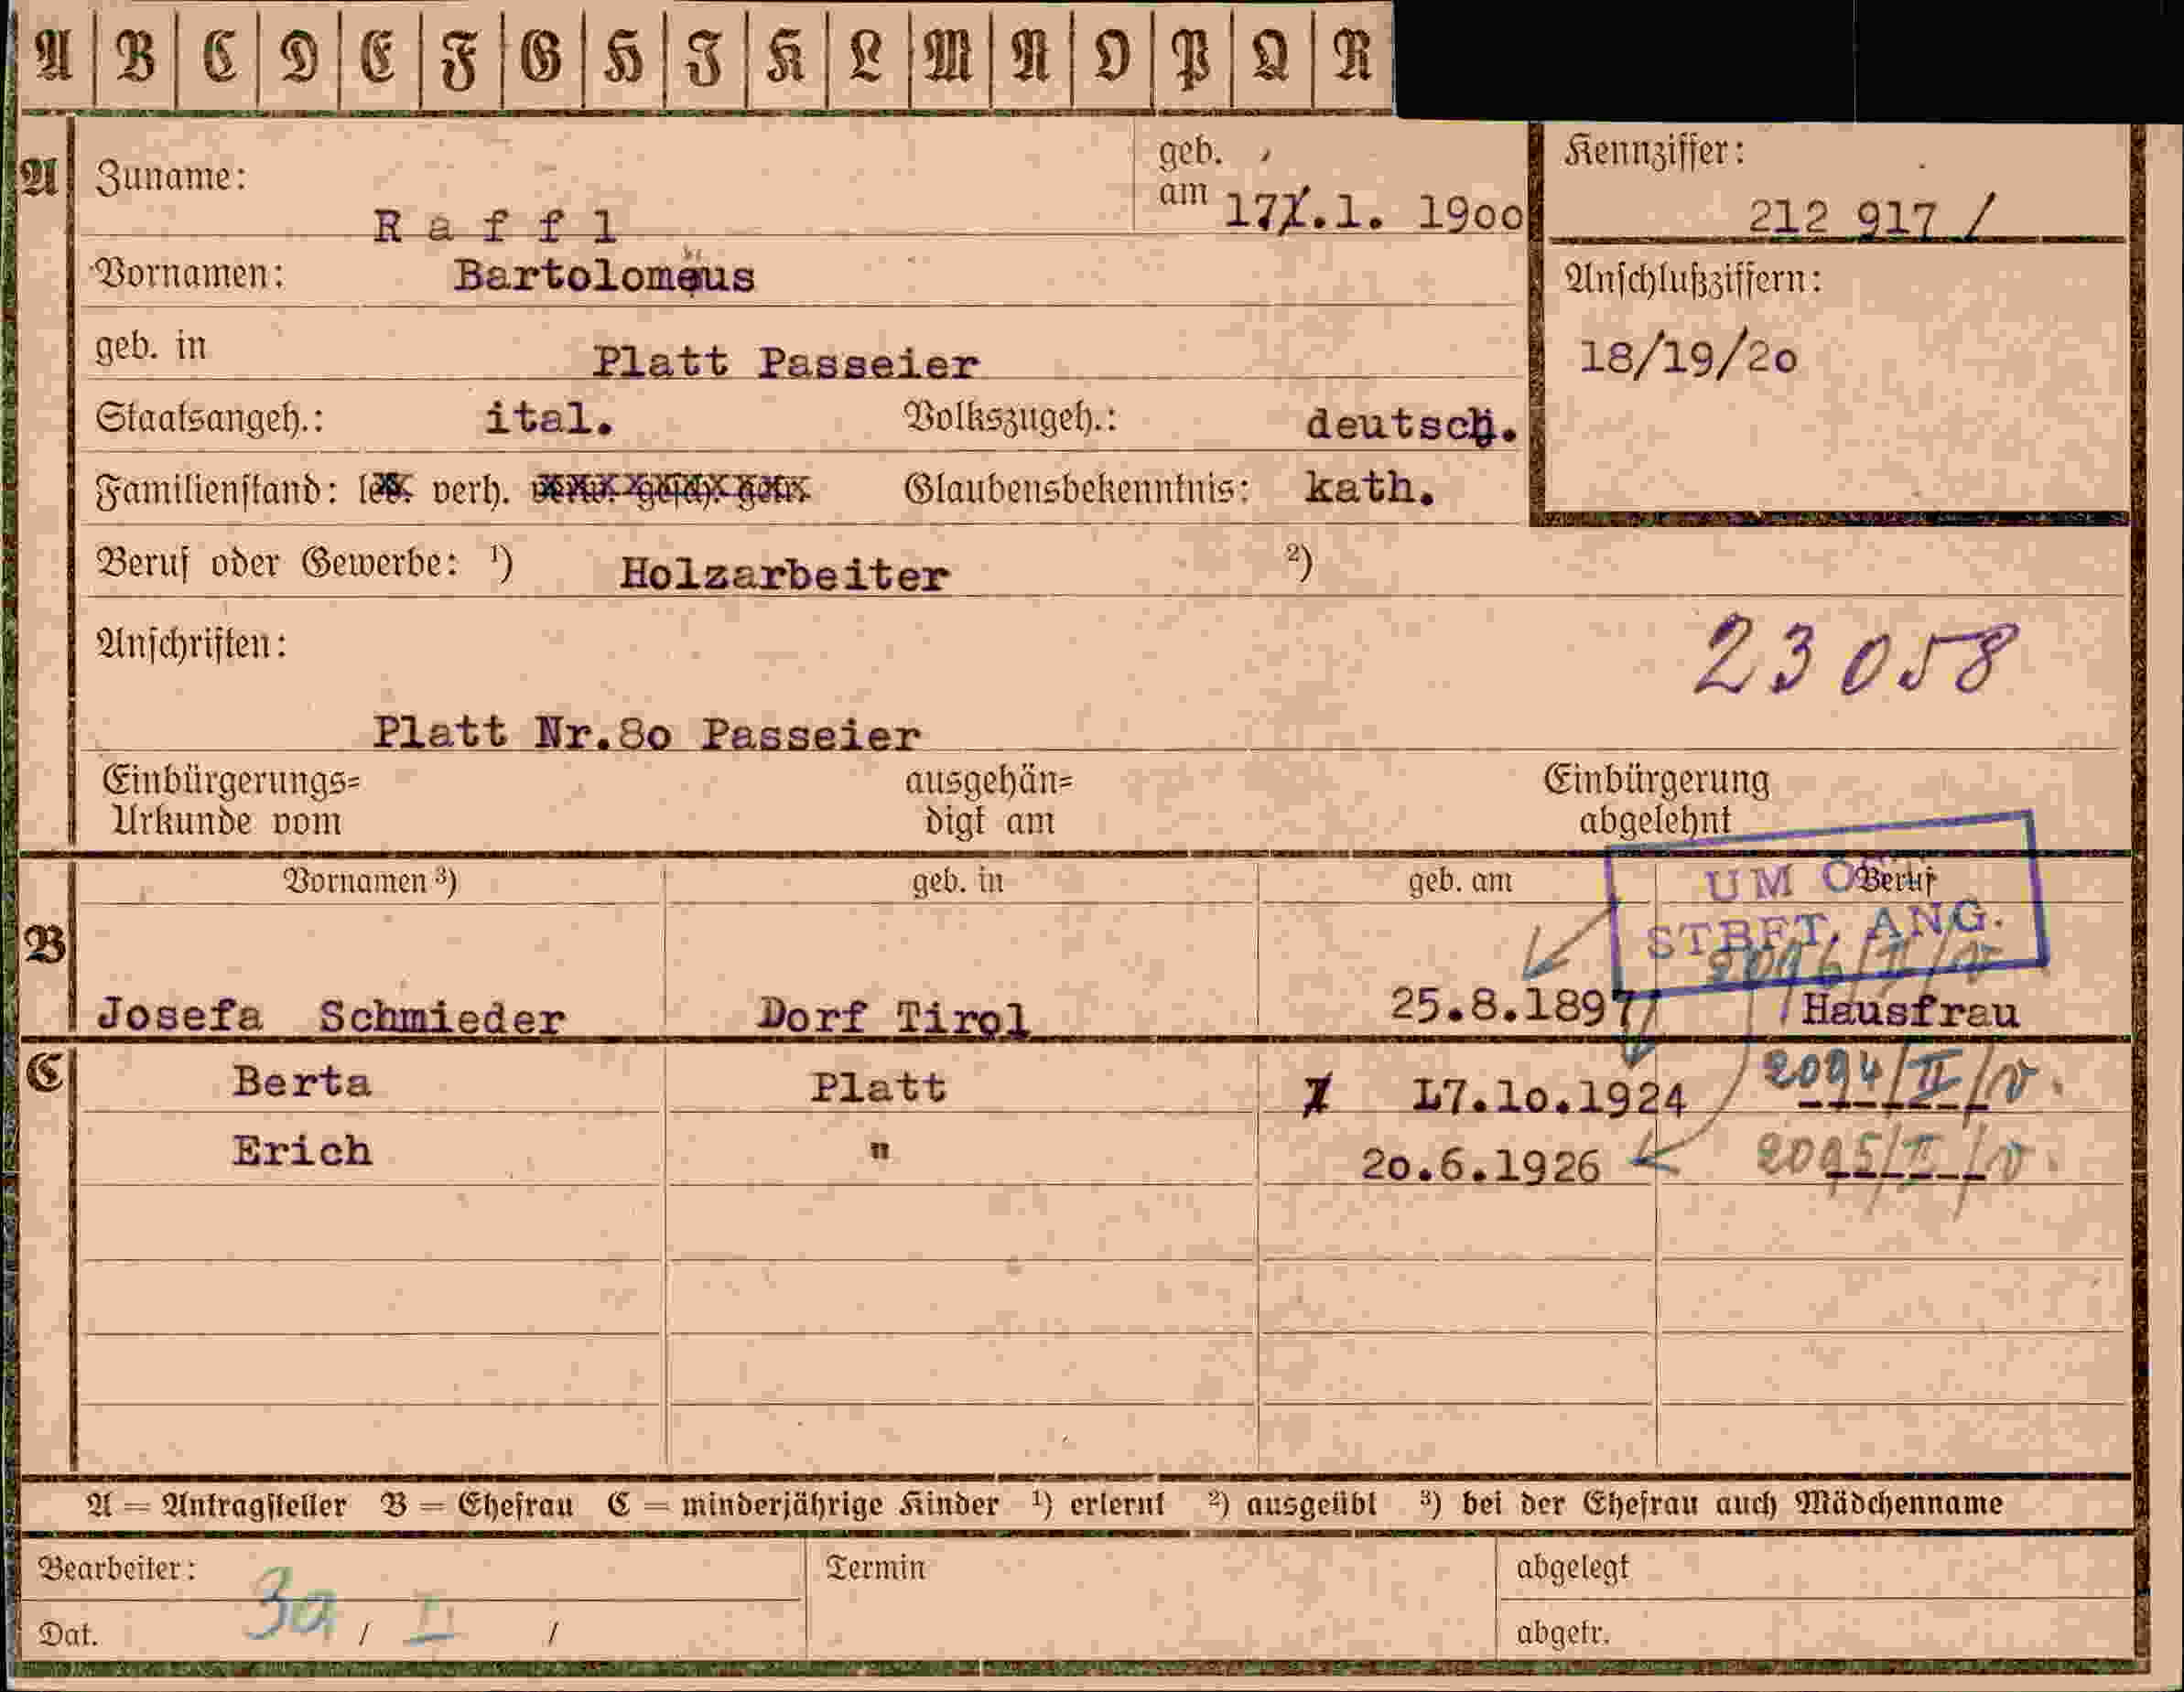 A B C D E F G H I K L M N O P Q R
A
Zuname: R a f f l
geb. am 17.1. 1900
Kennziffer: 212 917 /
Vornamen: Bartolomäus
Anschlußziffern:
18/19/20
geb. in Platt Passeier
Staatsangeh.: ital. Volkszugeh.: deutsch.
Familienstand: led. verh. verw. gesch. getr. Glaubensbekenntnis: kath.
Beruf oder Gewerbe: 1) Holzarbeiter 2)
Anschriften:
23058
Platt Nr.80 Passeier
Einbürgerungs= ausgehän= Einbürgerung
Urkunde vom digt am abgelehnt
Vornamen 3) geb. in geb. am Beruf
UM
STBFT. ANG.
B
Josefa Schmieder Dorf Tirol 25.8.1897 Hausfrau
C
Berta Platt 17.10.1924 2094/II/V.
Erich " 20.6.1926 2095/II/V.
A = Antragsteller B = Ehefrau C = minderjährige Kinder 1) erlernt 2) ausgeübt 3) bei der Ehefrau auch Mädchenname
Bearbeiter: Termin abgelegt
Dat. 30 / II / abgetr.